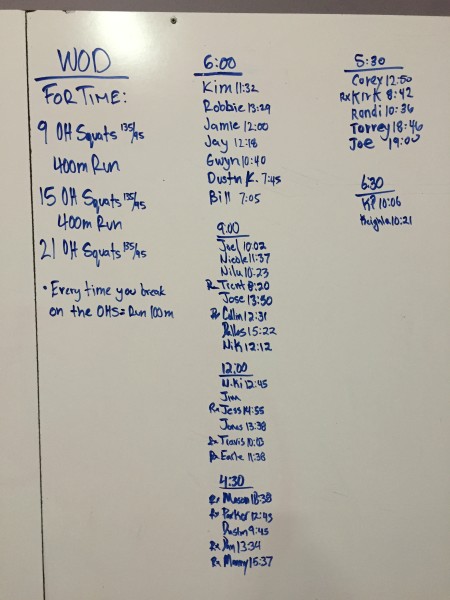 WOD
FOR TIME:
9 OH Squats 135/95
400m Run
15 OH Squats 135/95
400m Run
21 OH Squats 135/95
• Every time you break
on the OHS = Run 100m
6:00
Kim 11:32
Robbie 13:29
Jamie 12:00
Jay 12:18
Gwyn 10:40
Dustin K. 7:45
Bill 7:05
9:00
Joel 10:02
Nicole 11:37
Nilu 10:23
Rx Trent 8:20
Jose 13:50
Rx Colm 12:31
Dallas 15:22
Nik 12:12
12:00
Niki 12:45
Jim
Rx Jess 14:55
Jonas 13:38
Rx Travis 10:03
Rx Earle 11:38
4:30
Rx Mason 18:38
Rx Parker 12:43
Dustin 9:45
Rx 13:34
Rx Manny 15:37
5:30
Corey 12:50
Rx Kirk 8:42
Randi 10:36
Torrey 18:46
Joe 19:00
6:30
KP 10:06
Heighla 10:21